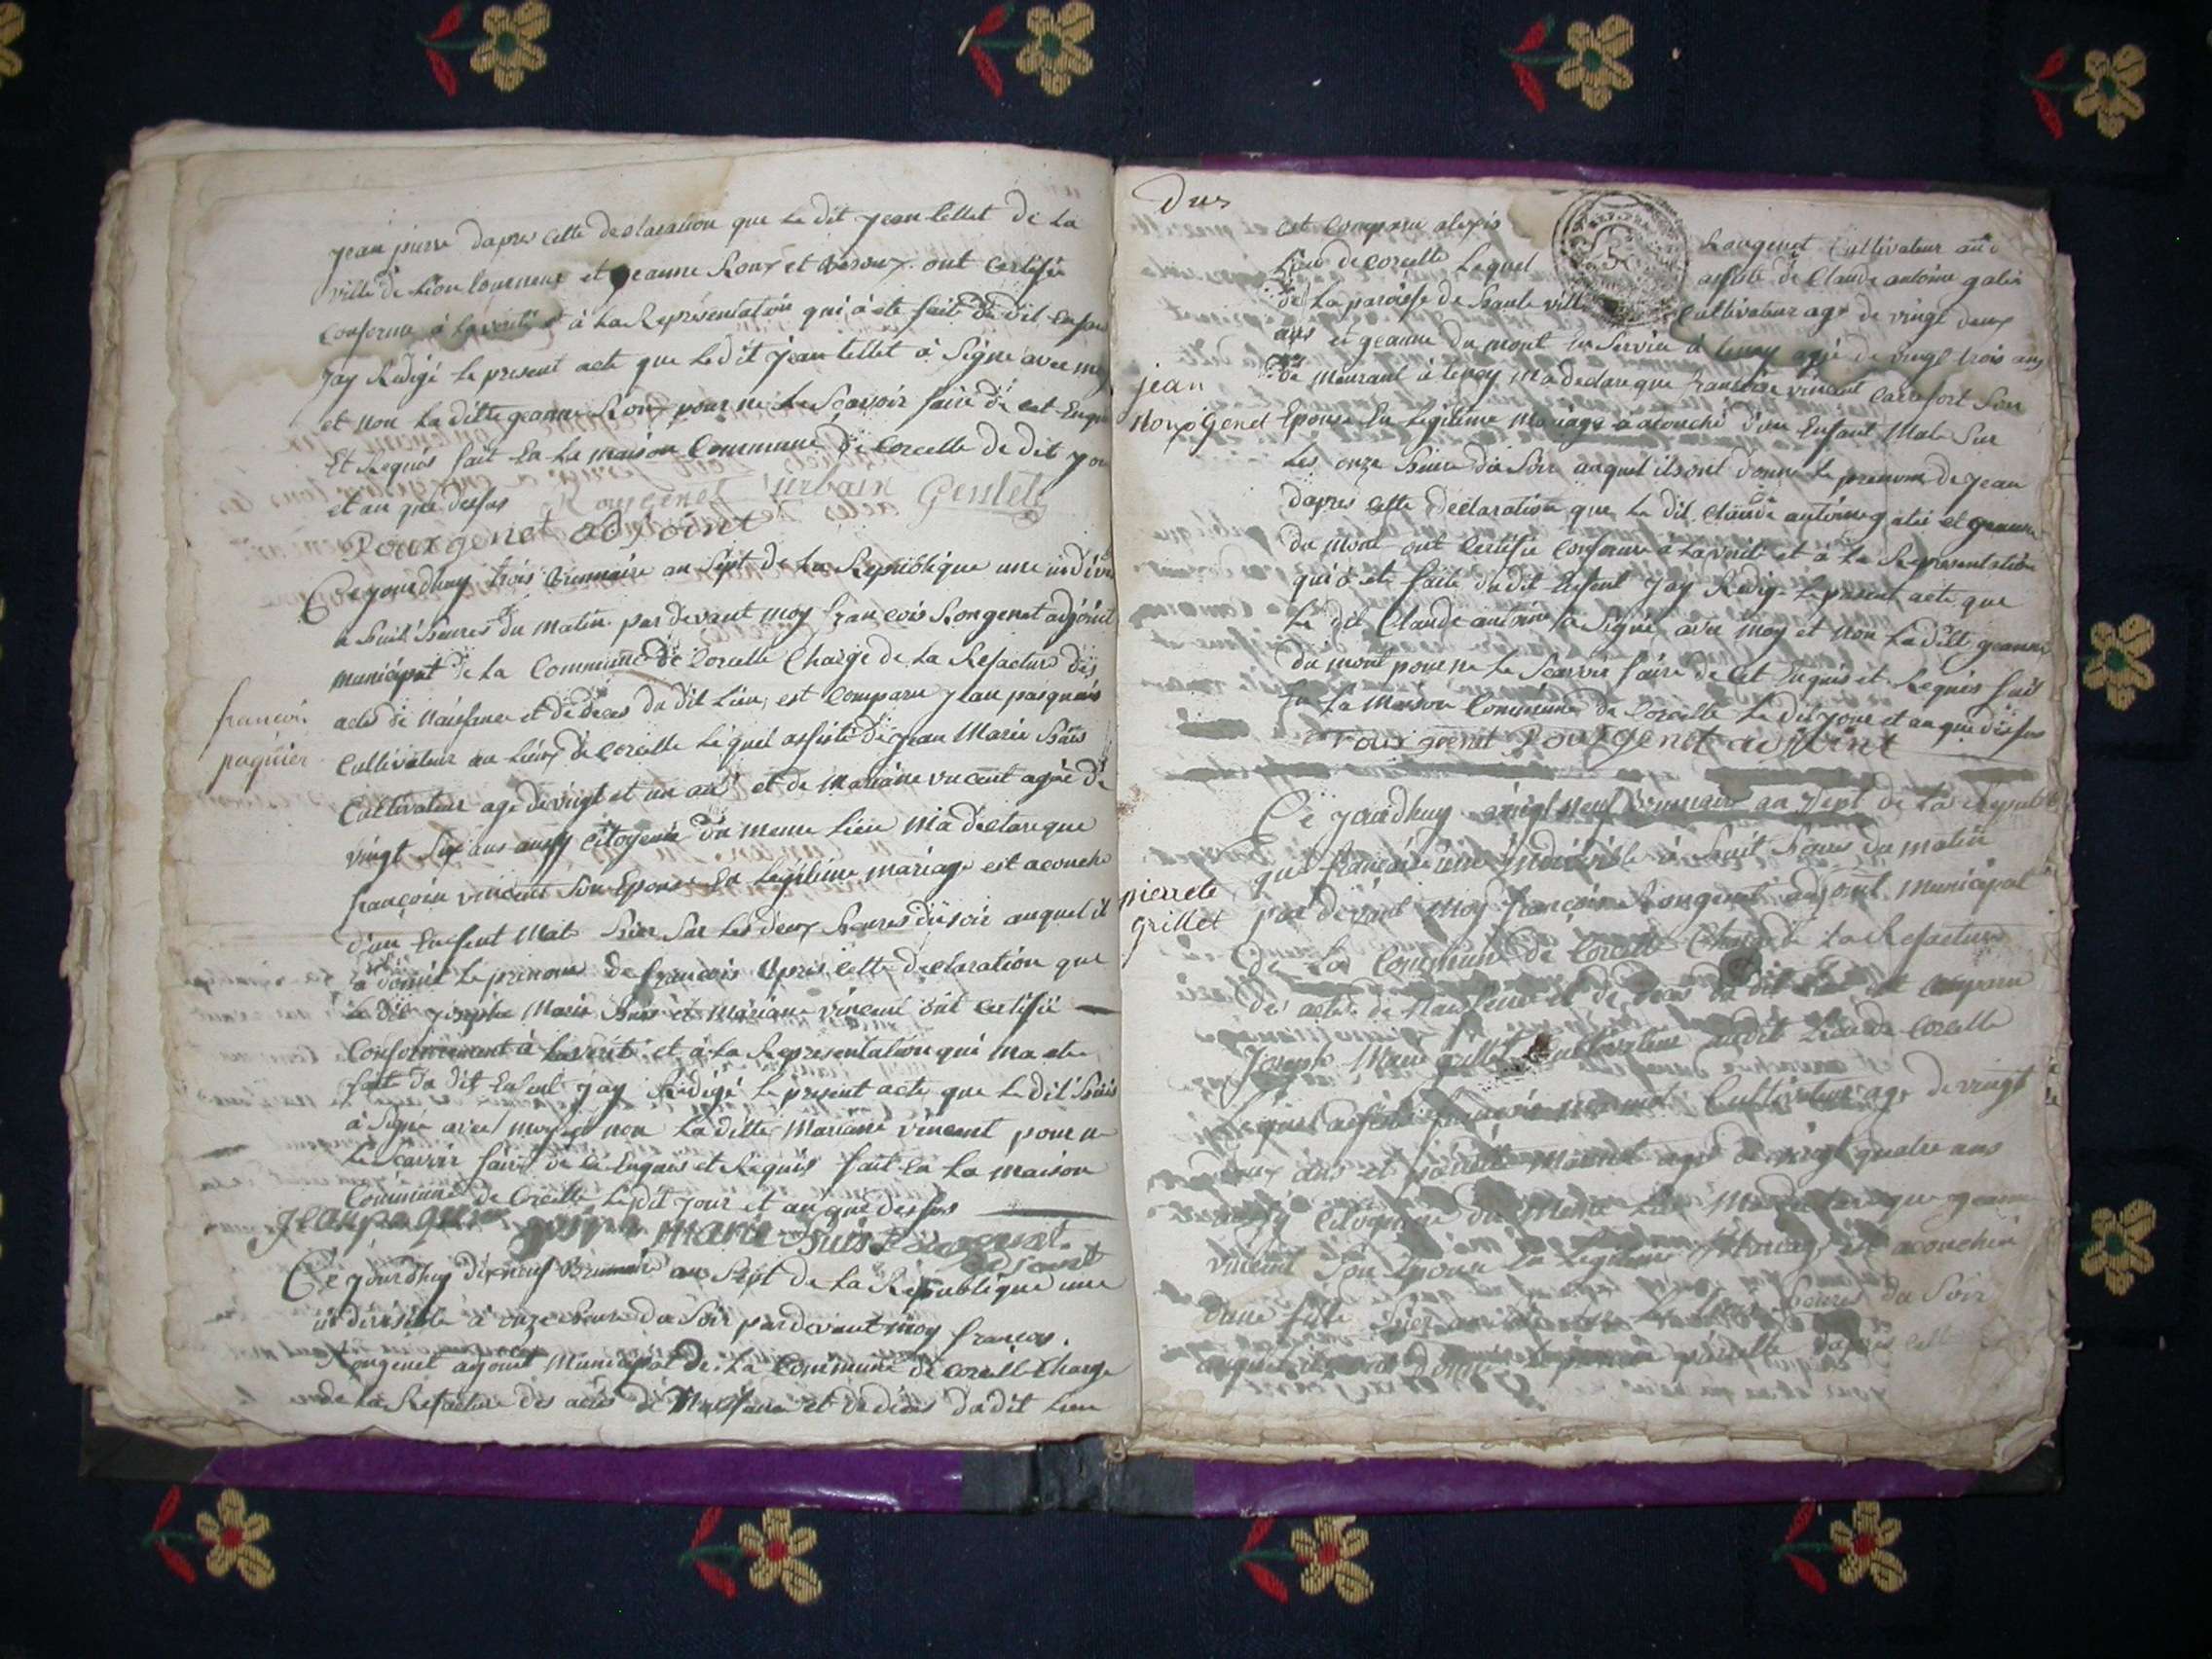 jean pierre dapres cette declaration que le dit jean tellet de la
ville de Lion et jeanne Roux et ont certifié
conforme à la verité et à la Representation qui à ete fait du dit Enfan
jay Redigé le present acte que le dit jean tellet à Signé avec moy
et non la ditte jeanne Roux pour ne le Scavoir faire de cet Enquis
Et Requis fait En la maison Commune de Corcelle de dit jou
et an que dessus Rougenet urbain
Rougenet adjoint
Ce jourdhuy trois Brumaire an Sept de la Republique une indivi
a huit heures du matin par devant moy francois Rongenet adjoint
municipal de la Commune de Corcelle Charge de la Refacture des
francois
paquier
actes de Naissence et de deces du dit Lieu, est Comparu jean pasquier
Cultivateur au Lieux de Corcelle lequel assisté de jean Marie huis
Cultivateur age de vingt et un ans et de Mariane vincent agée de
vingt Six ans aussy Citoyenne du meme Lieu Ma declare que
françoise vincent Son Epouse En Legitime mariage est acouche
d'un Enfent Mal hier Sur les deux heures du soir auquel il
à donné le prenom de francois Apres cette declaration que
le dit josephe Marie huis et Mariane vincent ont certifié
Conformement à la verité et à la Representation qui ma ete
fait du dit Enfent jay Redigé le present acte que le dit huis
à Signé avec moy et non la ditte Mariane vincent pour ne
le Scavoir faire de ce Enquis et Requis fait En la maison
Commune de Corcelle le dit jour et an que dessus
jean paquier joseph marie huis Rougenet
adjoint
Ce jourdhuy dixneuf Brumaire an Sept de la Republique une
indivisible à onze heure du Soir par devant moy francois
Rongenet ajoint Municipal de la Commune de Corcelle Charge
de la Refacture des actes de Naissance et de deces du dit Lieu
est Comparu alexis Rongenet Cultivateur au d
Lieu de Corcelle Lequel assisté de Claude antoine galis
de la paroisse de haute ville Cultivateur age de vingt deux
ans et jeanne du mont En Service à lenoy agée de vingt trois ans
jean
Rougenet
de Meurant à lenoy ma declare que francoise vincent Son
Epouse En Legitime Mariage à acouché d'un Enfant Male Sur
les onze heure du Soir auquel ils ont donné le prenom de jean
dapres cette declaration que le dit Claude antoine galis et jeanne
du mont ont Certifié Conforme à la verité et à la Representation
qui à ete faite du dit Enfant jay Redigé le present acte que
le dit Claude antoine à Signé avec moy et non la ditte jeanne
du mont pour ne le Scavoir faire de Cet Enquis et Requis fait
En la Maison Commune de Corcelle le dit jour et an que dessus
Rougenet Rougenet adjoint
Ce jourdhuy vingt neuf Brumaire an Sept de la Republi
que francaise une indivisible à huit heures du matin
pierrete
Grillet
par devant moy françois Rongenet adjoint Municipal
de la Commune de Corcelle Charge de la Refacture
des actes de Naissence et de deces du dit Lieu est Comparu
joseph Marie grillet Cultivateur au dit Lieu de Corcelle
Lequel assisté francois Cultivateur age de vingt
deux ans et agée de vingt quatre ans
aussy Citoyenne du Meme Lieu Ma declare que jeanne
vincent Son Epouse En Legitime Mariage est acouchée
d'une fille hier Sur les trois heures du Soir
donné le prenom pierrette dapres cette